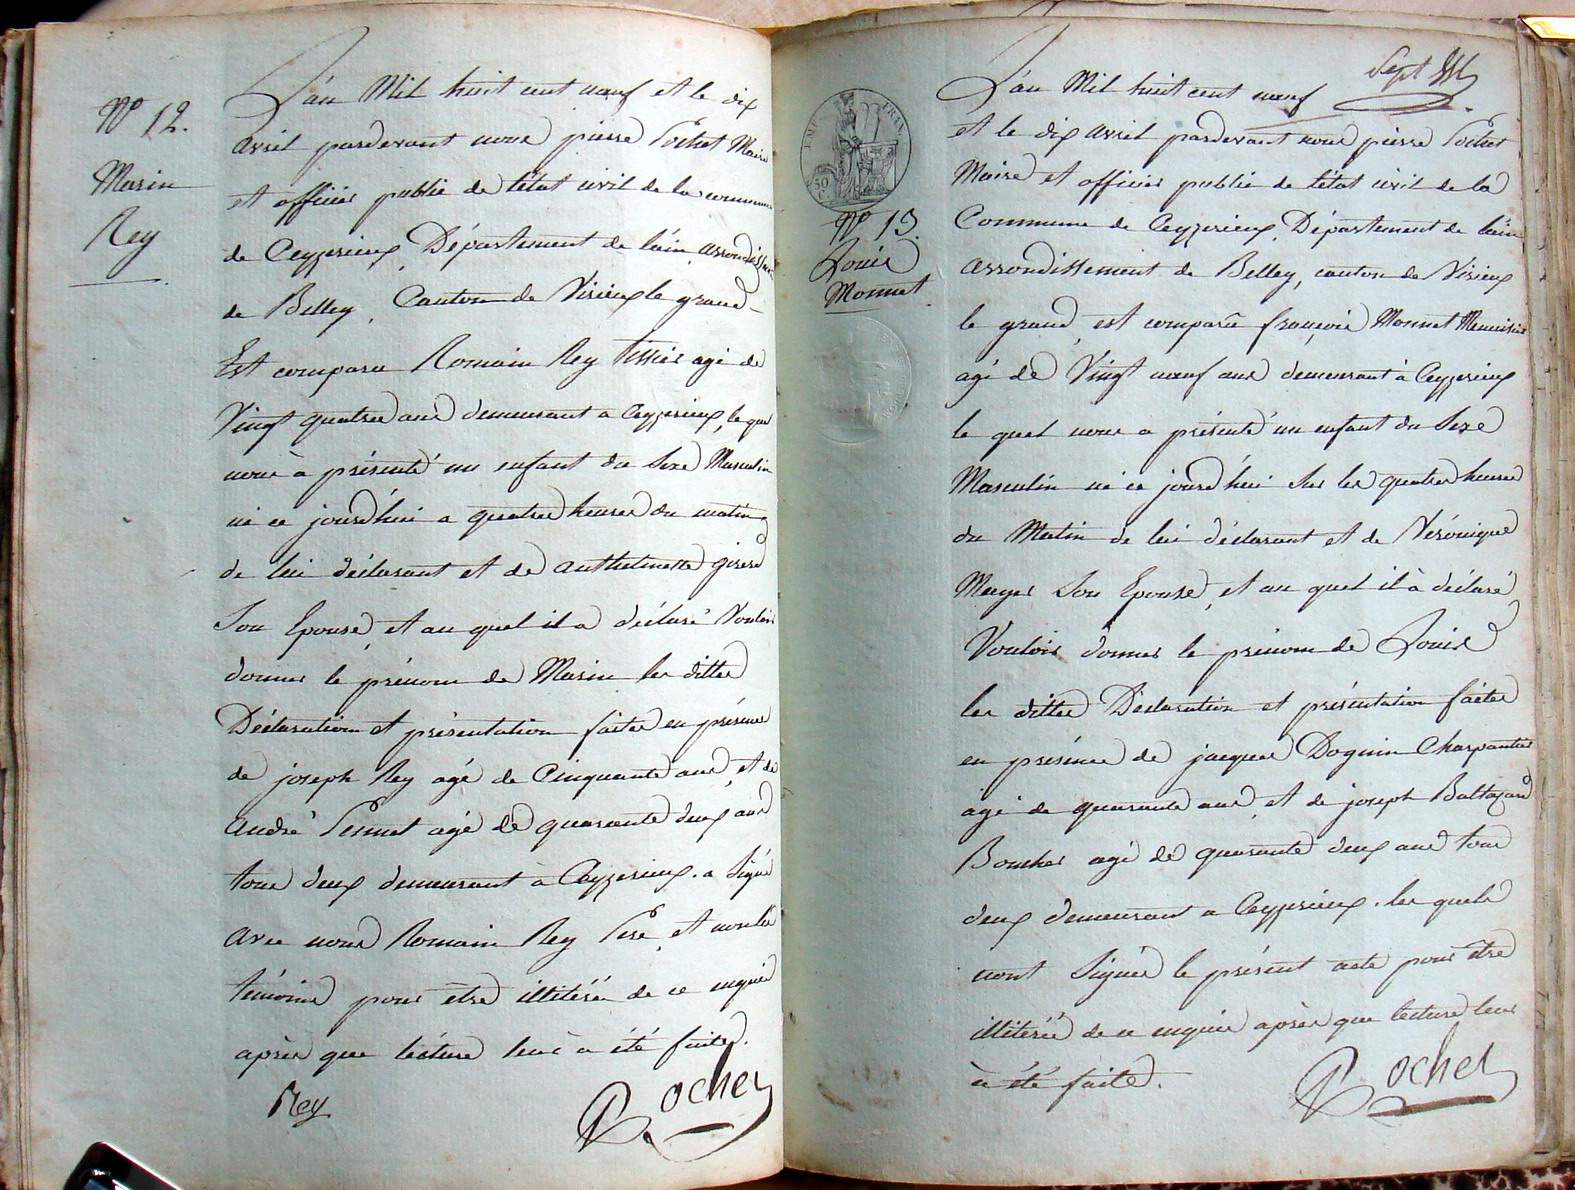 N° 12.
Marin
Rey
L'an Mil huit cent neuf et le dix
avril pardevant nous pierre Pochet Maire
et officier public de l'état civil de la commune
de Ceyzerieux, Département de l'ain, arrondissem
de Belley, Canton de Virieux le grand
Est comparu Romain Rey tissier agé de
Vingt quatre ans demeurant a Ceyzerieux, le quel
nous à présenté un enfant du Sexe Masculin
né ce jourd'hui a quatre heures du matin
de lui déclarant et de anthelmette girerd
Son Epouse, et au quel il a déclaré Vouloir
donner le prénom de Marin les dittes
Déclaration et présentation faites en présence
de joseph Rey agé de Cinquante ans, et de
andré Pernet agé de quarante deux ans
tous deux demeurant à Ceyzerieux. a Signé
avec nous Romain Rey Pere, et non les
témoins pour etre illitérés de ce enquis
après que lécture leur à été faite.
Rey
P. Rochet
Sept
EMP. FRAN.
50
N° 13.
Louis
Monnet
L'an Mil huit cent neuf
et le dix avril pardevant nous pierre Pochet
Maire et officier public de l'état civil de la
Commune de Ceyzerieux, Département de l'ain
arrondissement de Belley, canton de Virieux
le grand, est comparu françois Monnet Menuisier
agé de Vingt neuf ans demeurant à Ceyzerieux
le quel nous a présenté un enfant du Sexe
Masculin né ce jourd'hui Sur les quatre heures
du Matin de lui déclarant et de Véronique
Meyer Son Epouse, et au quel il à déclaré
Vouloir donner le prénom de Louis
les dittes Déclaration et présentation faites
en présence de jacques Doguin Charpentier
agé de quarante ans, et de joseph Baltazard
Boucher agé de quarante deux ans tous
deux demeurant a Ceyzerieux. les quels
n'ont Signés le présent acte pour etre
illitérés de ce enquis après que lecture leur
à été faite.
P. Rochet